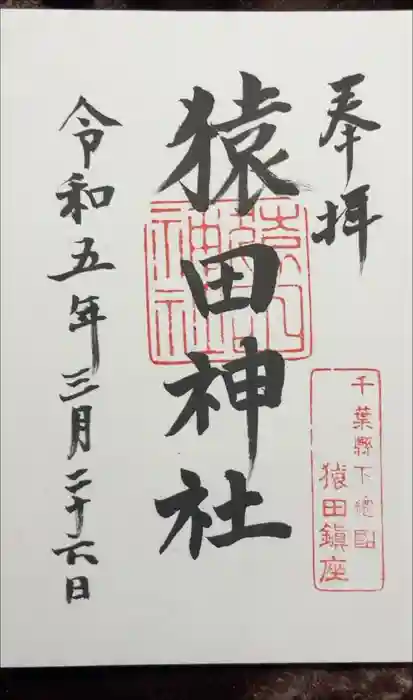 奉拝
千葉縣下總國
猿田鎮座
猿田神社
令和五年三月二十六日